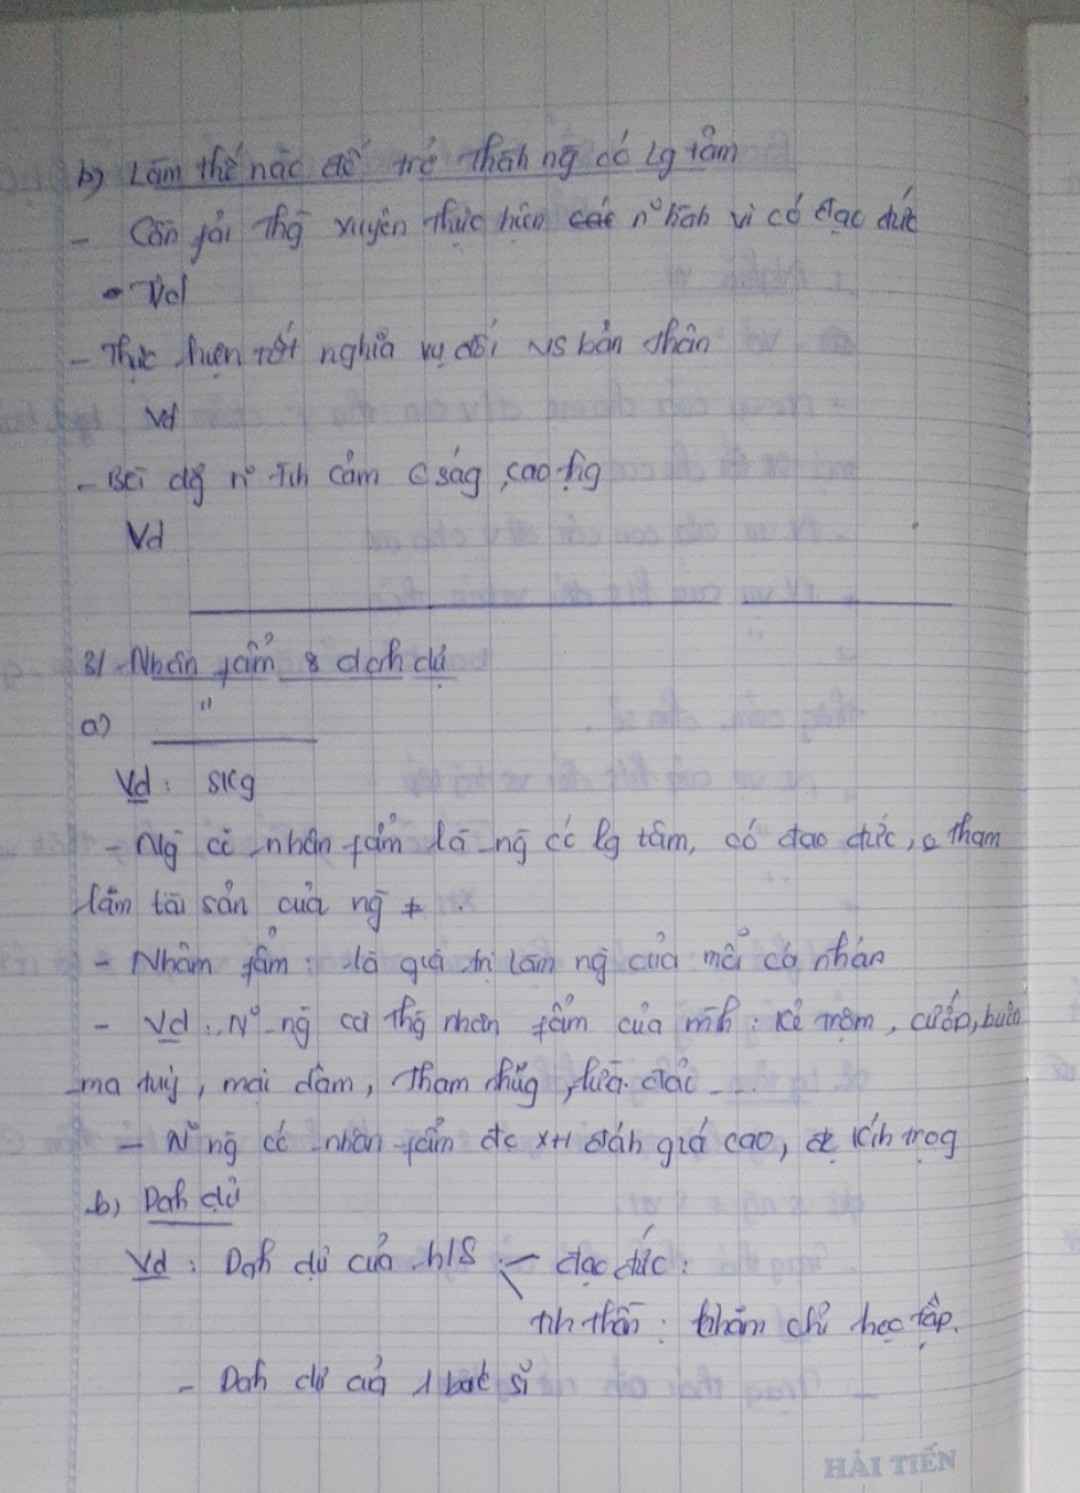 b) Làm thế nào để trở thàh ng̃ có lg tâm
- Cần fải thg̃ xuyên thực hiện các nº hàh vi có đạo đức
- Vd
- Thực hiện tốt nghĩa vụ đối vs bản thân
Vd
- Bồi dg̃ nº tìh cảm c ság, cao fig
Vd
3/ Nhân fẩm & dah dự
a) "
Vd: SKg
- Ng̃ có nhân fẩm là ng̃ có lg tâm, có đạo đức, o tham
lam tài sản của ng̃ ≠.
- Nhâm fẩm: là giá trị làm ng̃ của mỗi cá nhân
- Vd: Nº ng̃ coi thg̃ nhân fẩm của mìh: Kẻ trộm, cướp, buôn
ma túy, mại dâm, tham nhũg, lừa đảo ...
- Nº ng̃ có nhân fẩm đc XH đáh giá cao, đc kíh trọg
b) Dah dự
Vd: Dah dự của h/s: - đạo đức:
tih thần: chăm chỉ học tập.
- Dah dự của 1 bác sĩ
HẢI TIẾN